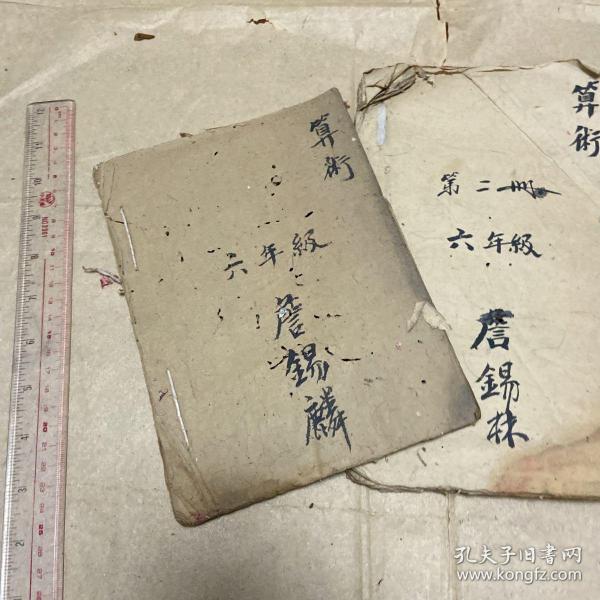 算術
六年級
詹錫麟
算術
第二冊
六年級
詹錫林
孔夫子旧书网
www.kongfz.com